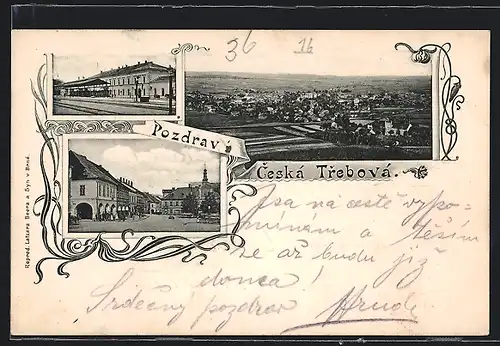 36 16
Pozdrav z
Česká Třebová.
Jsa na cestě vzpo-
mínám a těším
se až budu již
doma!
Srdečný pozdrav
Reprod. Letzny Beran a Syn v Brně.